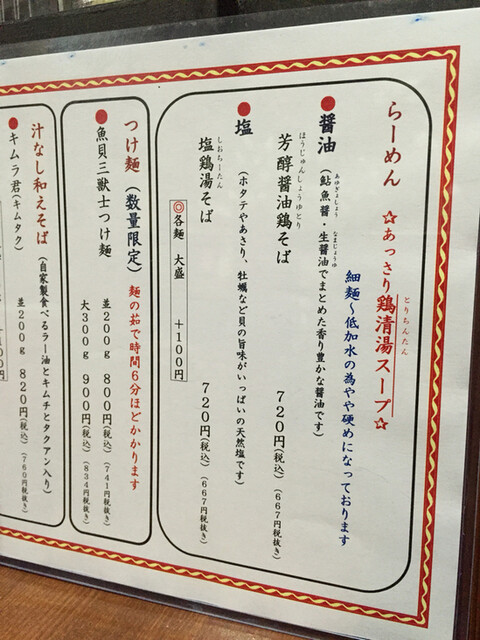 らーめん ☆あっさり鶏清湯スープ☆
とりちんたん
細麺～低加水の為やや硬めになっております
●醤油 (鮎魚醤・生醤油でまとめた香り豊かな醤油です)
あゆぎょしょう なまじょうゆ
芳醇醤油鶏そば 720円(税込) (667円税抜き)
ほうじゅんしょうゆとり
●塩 (ホタテやあさり、牡蠣など貝の旨味がいっぱいの天然塩です)
塩鶏湯そば 720円(税込) (667円税抜き)
しおちーたん
◎各麺 大盛 +100円
つけ麺 (数量限定) 麺の茹で時間6分ほどかかります
●魚貝三獣士つけ麺 並200g 800円(税込) (741円税抜き)
大300g 900円(税込) (834円税抜き)
汁なし和えそば (自家製食べるラー油とキムチとタクアン入り)
●キムラ君(キムタク) 並200g 820円(税込) (760円税抜き)